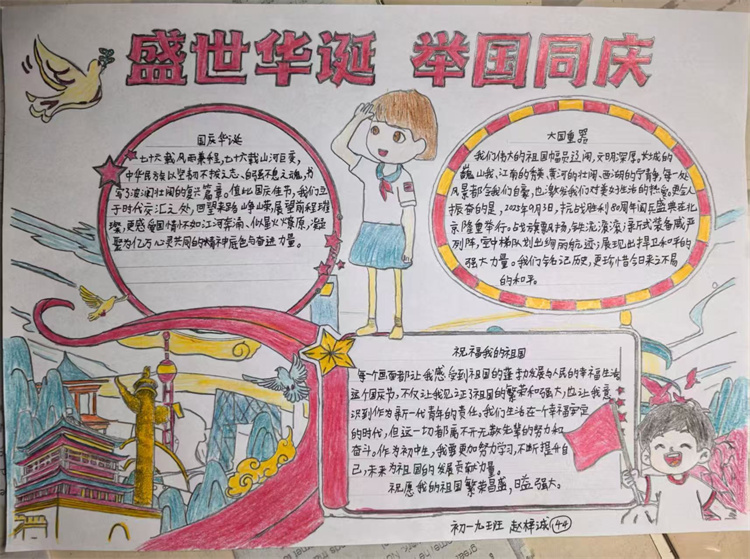 盛世华诞 举国同庆
国庆华诞
七十六载风雨兼程,七十六载山河巨变,
中华民族以坚韧不拔之志、自强不息之魂,书
写了波澜壮阔的复兴篇章。值此国庆佳节,我们立
于时代交汇之处,回望来路峥嵘展望前程璀
璨,更感爱国情怀如江河奔涌、似星火燎原,凝
聚为亿万心灵共同的精神底色与奋进力量。
大国重器
我们伟大的祖国幅员辽阔,文明深厚。长城的
巍峨山峦、江南的秀美、黄河的壮阔、西湖的宁静,每一处
风景都令我们自豪,也激发我们对美好生活的热爱。更令人
振奋的是,2025年9月3日,抗战胜利80周年阅兵盛典在北
京隆重举行。战旗飘扬,铁流滚滚;新式装备威严
列阵,空中梯队划出绚丽航迹;展现出捍卫和平的
强大力量。我们铭记历史,更珍惜今日来之不易
的和平。
祝福我的祖国
每个画面都让我感受到祖国的蓬勃发展与人民的幸福生活
这个国庆节,不仅让我见证了祖国的繁荣和强大,也让我意
识到作为新一代青年的责任。我们生活在一个幸福安定
的时代,但这一切都离不开无数先辈的努力和
奋斗。作为初中生,我要更加努力学习,不断提升自
己,未来为祖国的发展贡献力量。
祝愿我的祖国繁荣昌盛,日益强大。
初一九班 赵梓诚 44